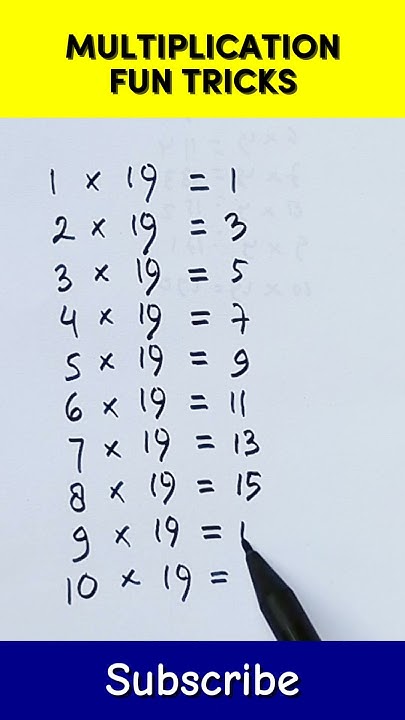 MULTIPLICATION
FUN TRICKS
1 × 19 = 1
2 × 19 = 3
3 × 19 = 5
4 × 19 = 7
5 × 19 = 9
6 × 19 = 11
7 × 19 = 13
8 × 19 = 15
9 × 19 = 1
10 × 19 =
Subscribe